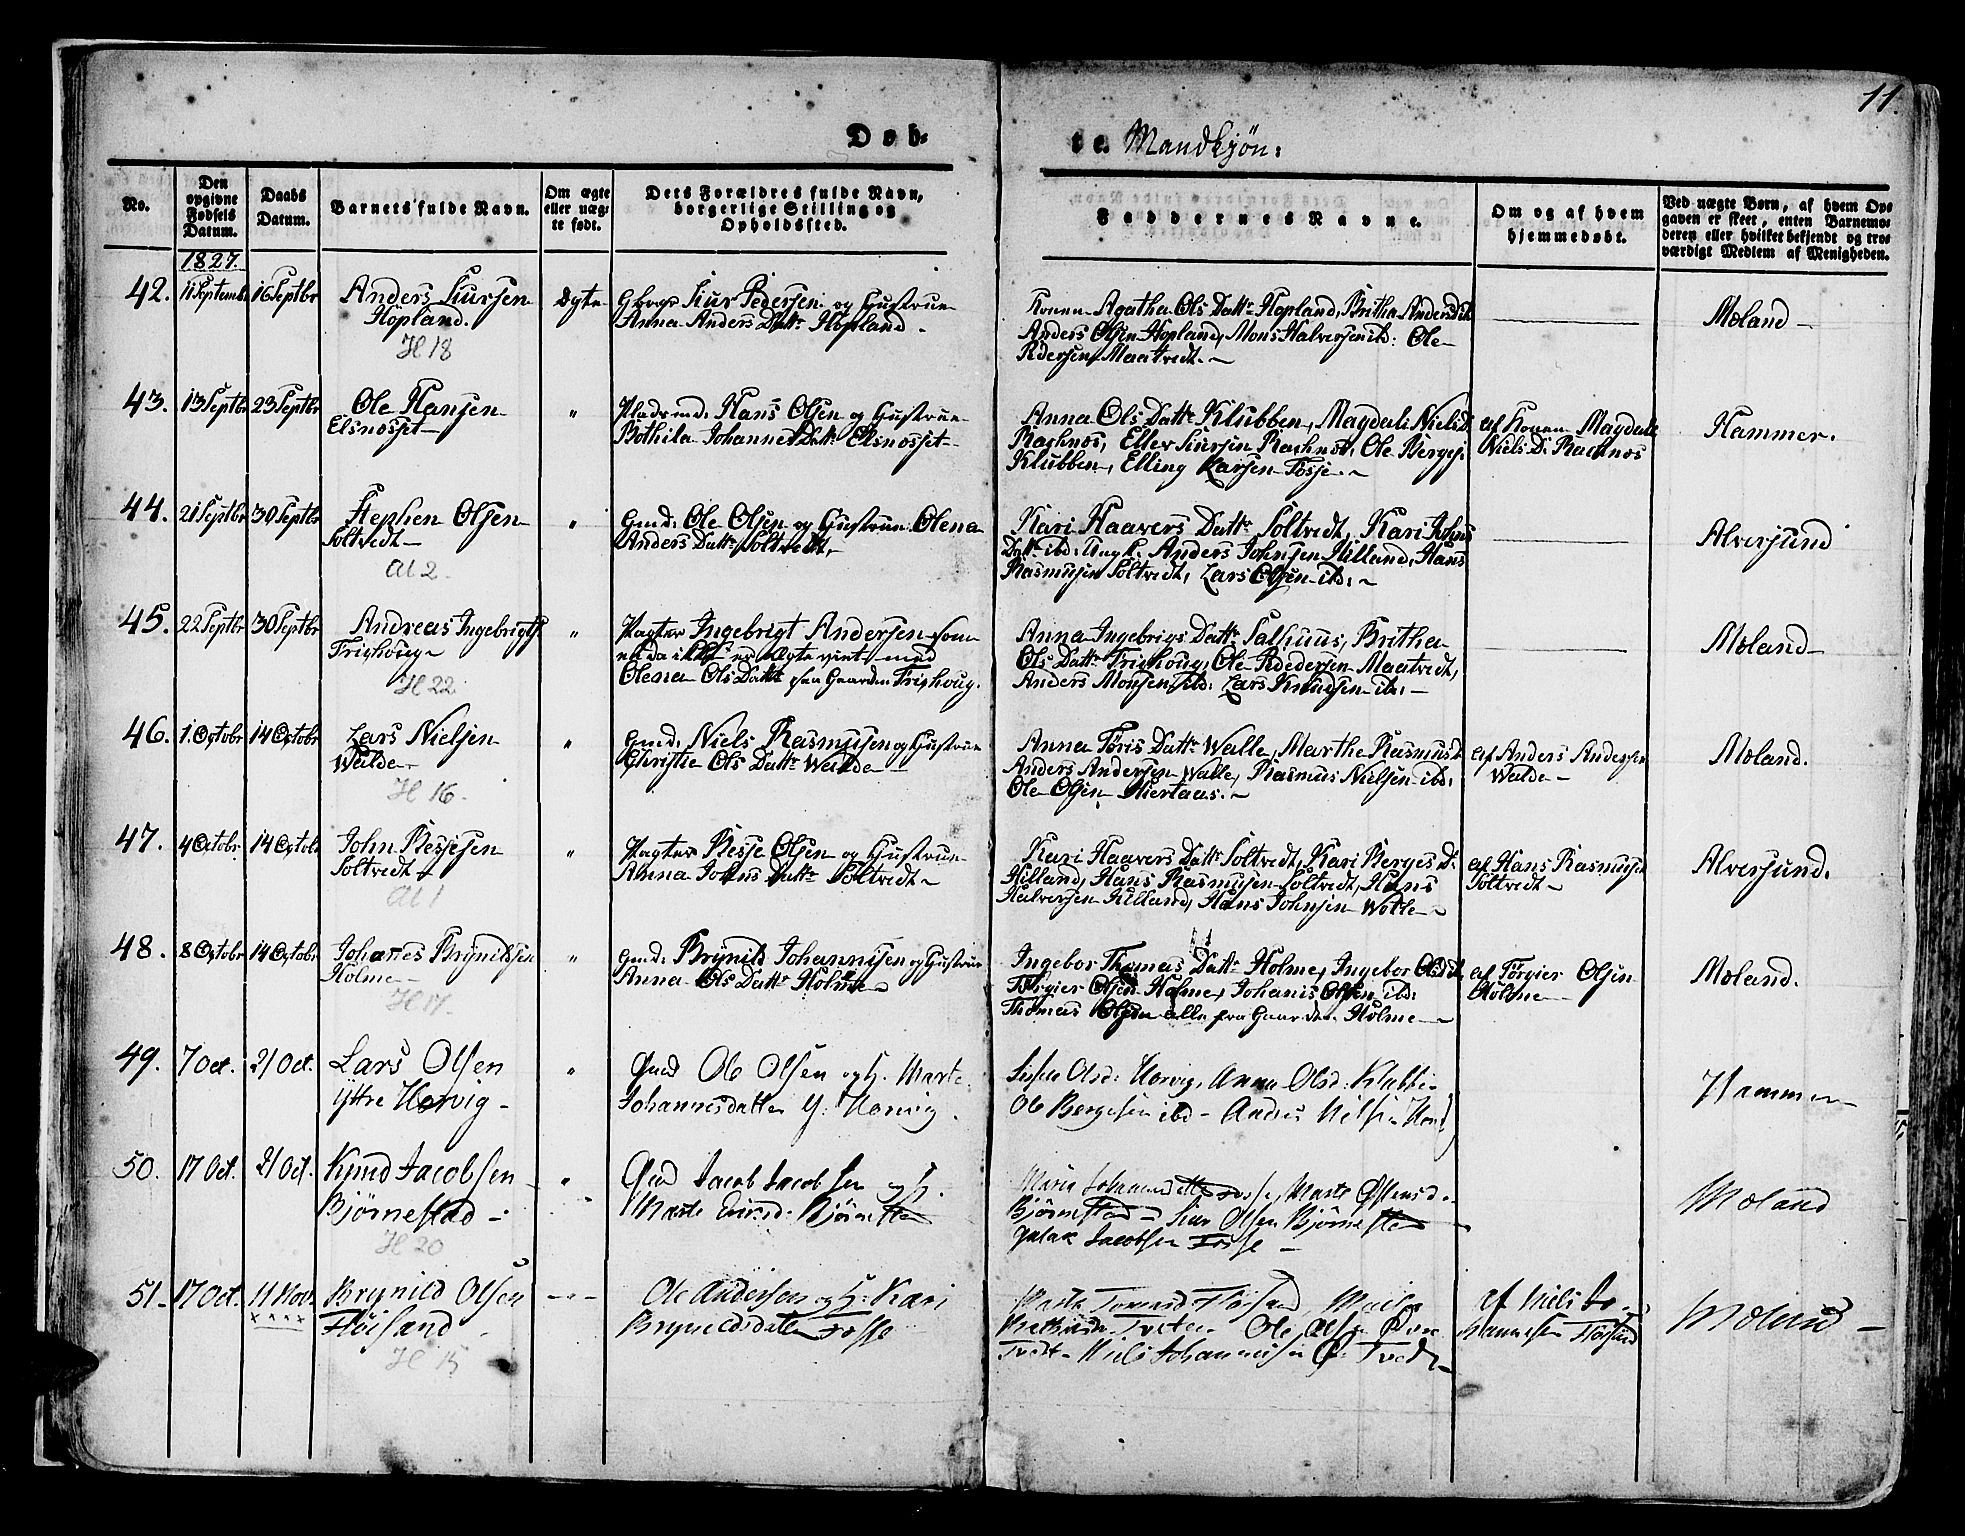 11.
Døb-
te. Mandkjøn:
No.
Den opgivne Fødsels Datum.
Daabs Datum.
Barnets fulde Navn.
Om ægte eller uægte født.
Dets Forældres fulde Navn, borgerlige Stilling og Opholdssted.
Faddernes Navne.
Om og af hvem hjemmedøbt.
Ved uægte Børn, af hvem Opgaven er skeet, enten Barnemoderen eller hvilket bekjendt og troværdigt Medlem af Menigheden.
1827.
42. 11 Septembr 16 Septbr Anders Siursen Ægte Siur Pedersen og Hustrue
Hopland. Anna Anders Datr. Hopland
H 18
Konen Agatha Ols Datr. Hopland, Britha Andersd. ibd.
Anders Olsen Hopland, Mons Halversen ibd: Ole
Pedersen Maatvedt.
Moland
43. 13 Septbr 23 Septbr Ole Hansen " Pladsmd. Hans Olsen og Hustrue
Elsnosset Bothila Johannes Datr. Elsnosset
Anna Ols Datr. Klubben, Magdali Niels D.
Raknos, Eller Siursen Raknos, Ole Berges.
Klubben, Elling Larsen Fosse.
af Konen Magdali
Niels D. Raknos
Hammer.
44. 21 Septbr 30 Septbr Stephen Olsen " Gmd: Ole Olsen og Hustrue Olena
Soltvedt Anders Datr. Soltvedt,
Al 2
Kari Haavers Datr. Soltvedt, Kari Johns
Datr. ibd: Ungk. Anders Johnsen Hilland, Hans
Rasmusen Soltvedt, Lars Olsen ibd:
Alversund
45. 22 Septbr 30 Septbr Andreas Ingebrigts. " Pagter Ingebrigt Andersen som
Frishoug er Ægteviet med
Olena Ols Datr. paa Gaarden Frishoug.
H 22
Anna Ingebrigs Datr. Salhuus, Britha
Ols Datr. Frishoug, Ole Pedersen Maatvedt,
Anders Monsen ibd: Lars Knudsen ib:
Moland
46. 1. Octobr 14 Octobr Lars Nielsen " Gmd: Niels Rasmusen og Hustrue
Walde Christie Ols Datr. Walde
H 16.
Anna Tøris Datr. Walle, Marthe Rasmusd.
Anders Andersen Walle, Rasmus Nielsen ibd:
Ole Olsen Hiertaas.
af Anders Andersen
Walde
Moland.
47. 4 Octobr. 14 Octobr John Besjesen " Pagter Besse Olsen og Hustrue
Soltvedt Anna Johns Datr. Soltvedt
Al 1
Kari Haavers Datr. Soltvedt, Kari Berges D.
Hilland, Hans Rasmusen Soltvedt, Hans
Halversen Hilland, Hans Johnsen Wolle
af Hans Rasmusen
Soltvedt
Alversund.
48. 8 Octobr 14 Octobr. Johanes Brynildsen " Gmd: Brynild Johannisen og Hustrue
Holme Anna Ols Datr. Holme
H 17.
Ingebor Thomas Datr. Holme, Ingebor Olsd. ib
Torgier Olsen Holme, Johanis Olsen ibd:
Thomas Olsen alle fra Gaarden Holme
af Torgier Olsen
Holme
Moland.
49. 7 Oct. 21 Oct. Lars Olsen " Gmd Ole Olsen og H. Marte
Ytre Horvig Johannesdatter Y: Horvig.
Olsd: Horvig, Anna Olsd: Klubbe
Ole Bergesen ibd - Anders Nilsen
Hammer
50. 17 Oct. 21 Oct. Knud Jacobsen " Gmd Jacob Jacobsen og H.
Bjørnestad Marte Bjørnestad
H 20
Marie Fosse, Marte
Bjørnestad Siur Olsen Bjørnestad
Jacobsen Fosse
Moland
51. 17 Oct. 11 Nov. Brynild Olsen " Ole Andersen og H. Kari
Fløisand Brynildsdatter Fosse
H 15
Fløisand,
Tveten Ole Olsen
Tvedt Niels Johannesen Tvedt
af Niels Johannesen
Fløisand
Moland